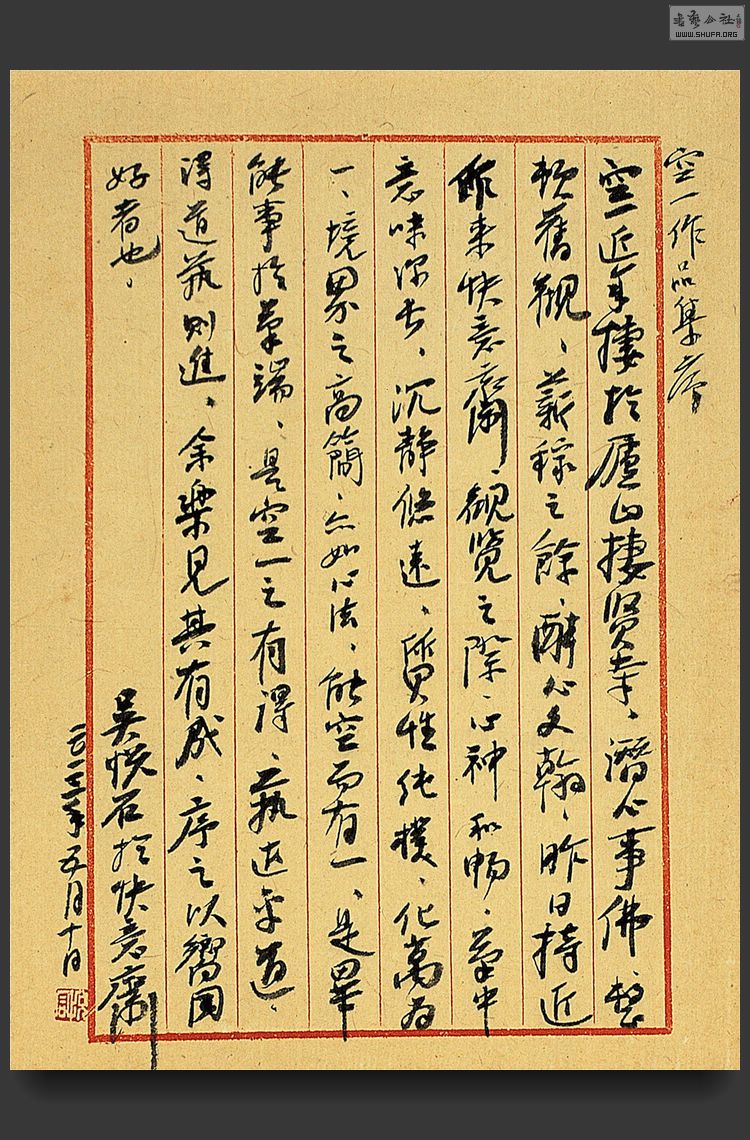 空一作品集序
空一近年棲於廬山棲賢寺、潛心事佛整
頓舊觀、蓺稼之餘、酣心文翰、昨日持近
作來快意齋、觀覽之際、心神和暢、筆中
意味深長、沉靜悠遠、質性純樸、化萬為
一、境界之高簡、亦如心法、能空而有一、是畢
能事於筆端、是空一之有得、蓺近乎道、
得道蓺則進、余樂見其有成、序之以嚮同
好者也、
吳悅石於快意齋
二〇一三年五月十日
WWW.SHUFA.ORG